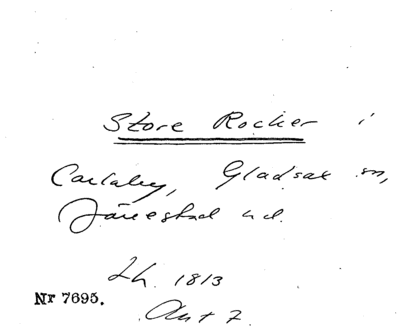 Store Rocker i
Carlaby, Gladsax sn,
Järrestad hd.
Lh. 1813
Nr 7695.
Ant 7.